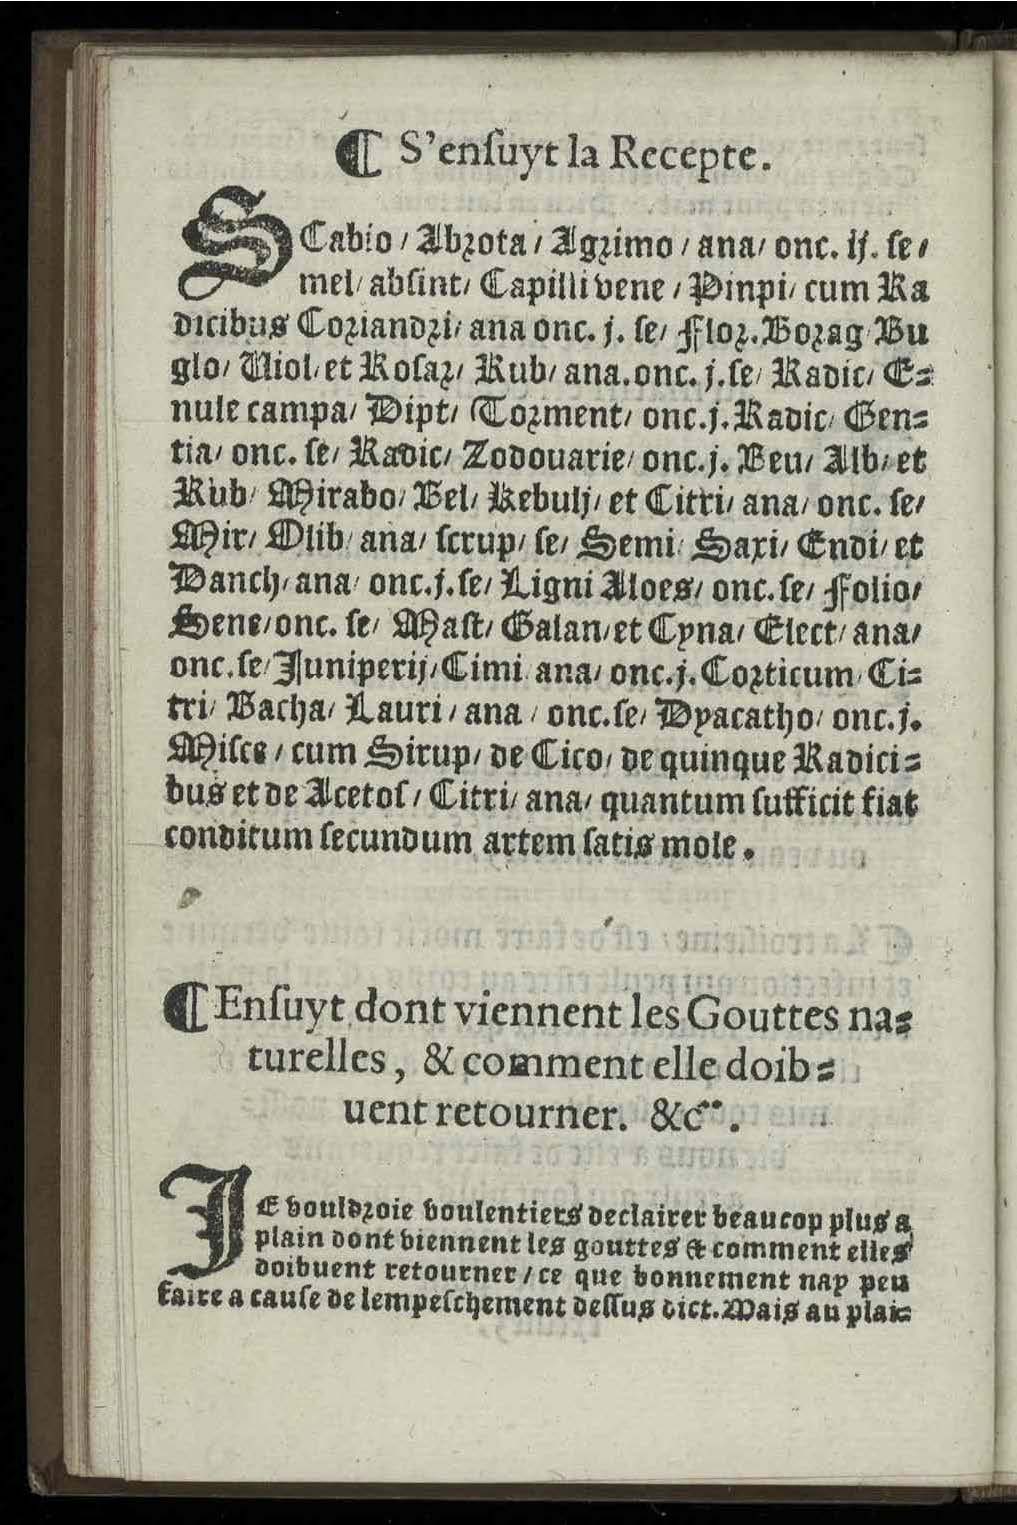 ¶ S'enſuyt la Recepte.
SCabio / Abꝛota / Agꝛimo / ana / onc. ij. ſe /
mel / abſint / Capilli vene / Pinpi / cum Ra
dicibus Coꝛiandꝛi / ana onc. j. ſe / Floꝛ. Boꝛag / Bu
glo / Uiol / et Roſaꝛ / Rub / ana. onc. j. ſe / Radic / E⸗
nule campa / Dipt / Toꝛment / onc. j. Radic / Gen⸗
tia / onc. ſe / Radic / Zodouarie / onc. j. Beu / Alb / et
Rub / Mirabo / Bel / Kebulj / et Citri / ana / onc. ſe /
Mir / Olib / ana / ſcrup / ſe / Semi / Saxi / Endi / et
Danch / ana / onc. j. ſe / Ligni Aloes / onc. ſe / Folio /
Sene / onc. ſe / Maſt / Galan / et Cyna / Elect / ana /
onc. ſe / Juniperij / Cimi / ana / onc. j. Coꝛticum / Ci⸗
tri / Bacha / Lauri / ana / onc. ſe / Dyacatho / onc. j.
Miſce / cum Sirup / de Cico / de quinque Radici⸗
bus et de Acetoſ / Citri / ana / quantum ſufficit fiat
conditum ſecundum artem ſatis mole.
¶ Enſuyt dont viennent les Gouttes na⸗
turelles, & comment elle doib⸗
uent retourner. &c¨.
JE vouldꝛoie voulentiers declairer beaucop plus a
plain dont viennent les gouttes & comment elles
doibuent retourner / ce que bonnement nay peu
faire a cauſe de lempeſchement deſſus dict. Mais au plai⸗